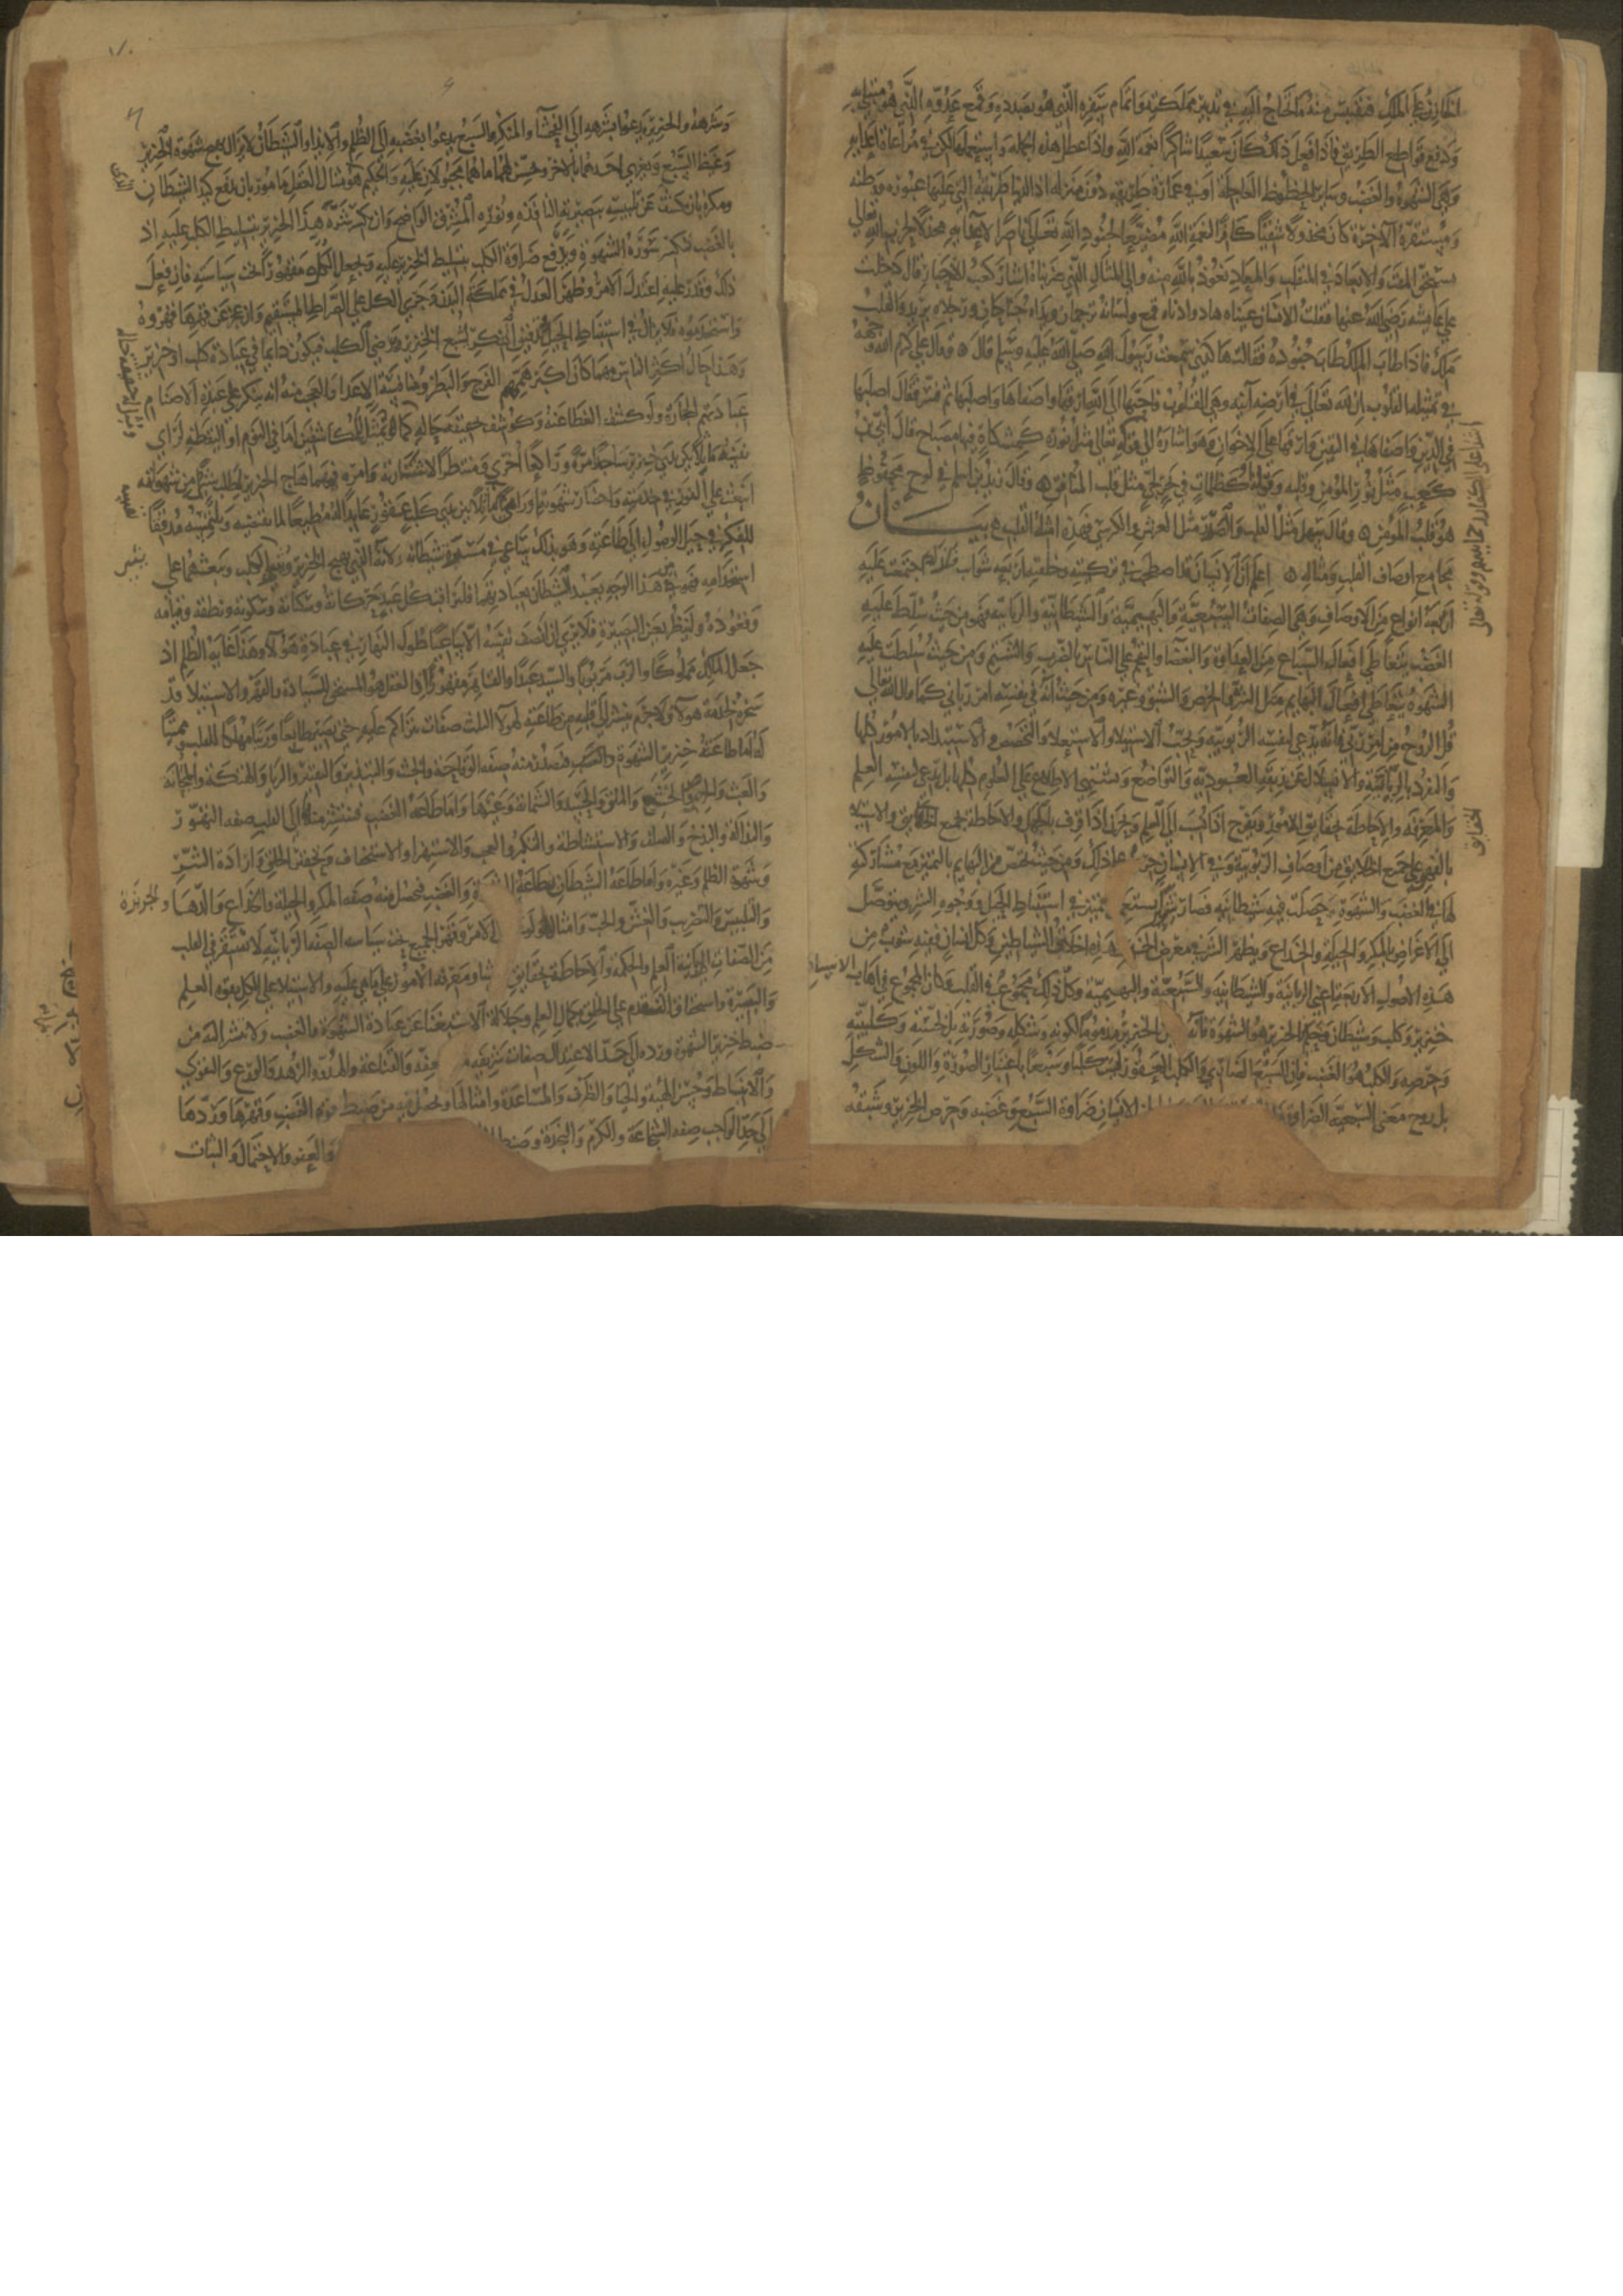 الخازن على الملك فيقتبس منه ما يحتاج اليه في تدبير مملكته واتمام سفره الذي هو بصدده وقمع عدوه الذي هو مبتلى به
ودفع قواطع الطريق فاذا فعل ذلك كان سعيدا شاكرا نعمة الله واذا عطل هذه الجملة واستعملها لكن في مراعاة اعدائه
وهي الشهوة والغضب وساير الحظوظ العاجلة او في عمارة طريقه دون منزله اذ الدنيا طريقه التي عليها عبوره ووطنه
ومستقره الآخرة كان مخذولا شقيا كافرا بنعمة الله مضيعا لجنود الله تعالى ناصرا لاعداء الله مخذلا لحزب الله تعالى
يستحق المقت والابعاد في المنقلب والمعاد نعوذ بالله منه والى المثال الذي ضربناه اشار كعب الاحبار قال دخلت
على عايشه رضي الله عنها فقلت الانسان عيناه هاد واذناه قمع ولسانه ترجمان ويداه جناحان ورجلاه بريد والقلب
ملك فاذا طاب الملك طابت جنوده فقالت هكذى سمعت رسول الله صلى الله عليه وسلم قال وقال علي كرم الله وجهه
في تمثيله القلوب ان لله تعالى في ارضه آنيه وهي القلوب فاحبها الى الله ارقها واصفاها واصلبها ثم فسر فقال اصلبها
في الدين واصفاها في اليقين وارقها على الاخوان وهو اشارة الى قوله تعالى مثل نوره كمشكاة فيها مصباح قال ابي بن
كعب مثل نور المؤمن وقلبه وقوله او كظلمات في بحر لجي مثل قلب المنافق وقال زيد بن اسلم في لوح محفوظ
هو قلب المؤمن وقال سهل مثل القلب والصدر مثل العرش والكرسي فهذه امثلة القلب بيان
مجامع اوصاف القلب ومثاله اعلم ان الانسان قد اصطحب في تركيبه وخلقته اربعه شوايب فلذلك اجتمعت عليه
اربعة انواع من الاوصاف وهي الصفات السبعية والبهيمية والشيطانية والربانية فهو من حيث سلط عليه
الغضب يتعاطى افعال السباع من العداوة والبغضا والتهجم على الناس بالضرب والشتم ومن حيث سلطت عليه
الشهوة يتعاطى افعال البهايم من الشره والحرص والشبق وغيره ومن حيث انه في نفسه امر رباني كما قال الله تعالى
قل الروح من امر ربي فانه يدعي لنفسه الربوبيه ويحب الاستيلا والاستعلا والتخصص والاستبداد بالامور كلها
والتفرد بالرياسة والانسلال عن ربقة العبودية والتواضع ويشتهي الاطلاع على العلوم كلها بل يدعي لنفسه العلم
والمعرفة والاحاطة بحقايق الامور ويفرح اذا نسب الى العلم ويحزن اذا قرف بالجهل والاحاطة بجميع الحقايق والاستيلا
بالقهر على جميع الخلايق من اوصاف الربوبية وفي الانسان حرص على ذلك ومن حيث يختص من البهايم بالتمييز مع مشاركته
لها في الغضب والشهوة حصلت فيه شيطانيه فصار شريرا يستعمل التمييز في استنباط الحيل ووجوه الشر ويتوصل
الى الاغراض بالمكر والحيلة والخداع ويظهر الشر في معرض الخير وهذه اخلاق الشياطين وكل انسان ففيه شوب من
هذه الاصول الاربعة اعني الربانية والشيطانية والسبعية والبهيمية وكل ذلك مجموع في القلب وكان المجموع في اهاب الانسان
خنزير وكلب وشيطان وحكيم والخنزير هو الشهوة فانه لم يكن الخنزير مذموما لكونه وشكله وصورته بل لجشعه وكلبه
وحرصه والكلب هو الغضب فان السبع الضاري والكلب العقور ليس كلبا وسبعا باعتبار الصورة واللون والشكل
بل روح معنى السبعية الضراوة باطن الانسان ضراوة السبع وغضبه وحرص الخنزير وشبقه
اشار على
وقوله تعالى
الحقايق
وشرهه والخنزير يدعوا بشرهه الى الفحشا والمنكر والسبع يدعوا بغضبه الى الظلم والايذا والشيطان لا يزال يهيج شهوة الخنزير
وغيظ السبع ويغري احدهما بالاخر ويحسن لهما ما هما مجبولان عليه والحكيم هو مثال العقل مامور بان يدفع كيد الشيطان
ومكره بان يكشف عن تلبيسه ببصيرته النافذه ونوره المشرق الواضح وان يكسر شره هذا الخنزير بتسليط الكلب عليه اذ
بالغضب تنكسر سورة الشهوة ويدفع ضراوة الكلب بتسليط الخنزير عليه ويجعل الكل مقهورا تحت سياسته فان فعل
ذلك وقدر عليه اعتدل الامر وظهر العدل في مملكة البدن وجرى الكل على الصراط المستقيم وان عجز عن قهرها قهروه
واستخدموه فلا يزال في استنباط الحيل وتدقيق الفكر ليشبع الخنزير ويرضي الكلب فيكون دايما في عبادة كلب او خنزير
وهذا حال اكثر الناس مهما كان اكثر همتهم الفرج والبطن ومنافسة الاعدا والعجب منه انه ينكر على عبدة الاصنام
عبادتهم للحجارة ولو كشف الغطا عنه وكوشف بحقيقة حاله كما يتمثل للمكاشفين اما في النوم او اليقظة لراى
نفسه ماثلا بين يدي خنزير ساجدا مرة وراكعا اخرى ومنتظرا لاشارته وامره فمهما هاج الخنزير لطلب شي من شهواته
انبعث على الفور في خدمته واحضار شهوته او راى ماثلا بين يدي كلب عقور عابدا له مطيعا لما يقتضيه ويلتمسه مدققا
للفكر في حيل الوصول الى طاعته وهو بذلك يسعى في مسرة شيطانه لانه الذي يهيج الخنزير ويثير الكلب ويبعثهما على
استخدامه فهو من هذا الوجه يعبد الشيطان بعبادتهما فليراقب كل عبد حركاته وسكناته وسكوته ونطقه وقيامه
وقعوده ولينظر بعين البصيرة فلا يرى ان انصف نفسه الا ساعيا طول النهار في عبادة هولا وهذا غاية الظلم اذ
جعل المالك مملوكا والرب مربوبا والسيد عبدا والقاهر مقهورا اذ العقل هو المستحق للسيادة والقهر والاستيلا وقد
سخره لخدمة هولا فلا جرم ينتشر الى قلبه من طاعته لهولا الثلث صفات تتراكم عليه حتى يصير طابعا ورينا مهلكا للقلب ومميتا
له اما طاعة خنزير الشهوة فتصدر منه صفه الوقاحة والخبث والتبذير والتقتير والريا والهتكه والمجانة
والعبث والحرص والجشع والملق والحسد والشماتة وغيرها واما طاعة الغضب فتنتشر منه الى القلب صفه التهور
والبذالة والبذخ والصلف والاستشاطة والتكبر والعجب والاستهزا والاستخفاف وتحقير الخلق وارادة الشر
وشهوة الظلم وغيره واما طاعة الشيطان بطاعة الشهوة والغضب فتحصل منه صفه المكر والحيلة والخداع والدها والجربزة
والتلبيس والتضريب والغش والخب وامثالها ولو الامر وقهر الجميع تحت سياسه الصفه الربانيه لاستقر في القلب
من الصفات الربانيه العلم والحكمه والاحاطة بحقايق ومعرفة الامور على ما هي عليه والاستيلا على الكل بقوة العلم
والبصيرة واستحقاق التقدم على الخلق بكمال العلم وجلاله الاستغنا عن عبادة الشهوة والغضب ولانتشر اليه من
ضبط خنزير الشهوة ورده الى حد الاعتدال صفات شريفه والقناعة والهدو والزهد والورع والتقوى
والانبساط وحسن الهيئة والحيا والظرف والمساعدة وامثالها ويحصل فيه من ضبط قوة الغضب وقهرها وردها
الى حد الواجب صفه الشجاعة والكرم والنجدة وضبط والعفو والاحتمال والثبات
حقيقه حاله
نفسه